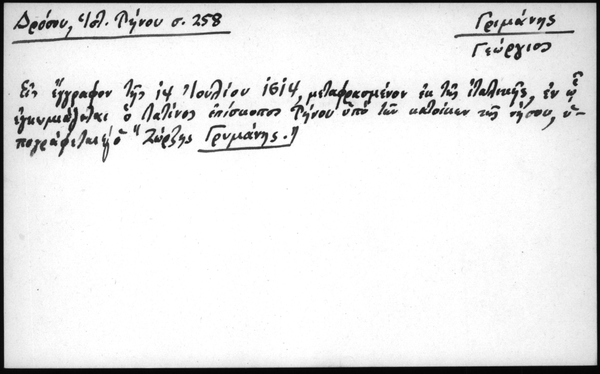 Δρόσου, Ἱστ. Τήνου σ. 258
Γριμάνης
Γεώργιος
Εἰς ἔγγραφον τῆς 14 Ἰουλίου 1614, μεταφρασμένον ἐκ τῆς ἰταλικῆς, ἐν ᾧ
ἐγκωμιάζεται ὁ Λατῖνος ἐπίσκοπος Τήνου ὑπὸ τῶν κατοίκων τῆς νήσου, ὑ-
πογράφεται ὁ "Ζώρζης Γρυμάνης."